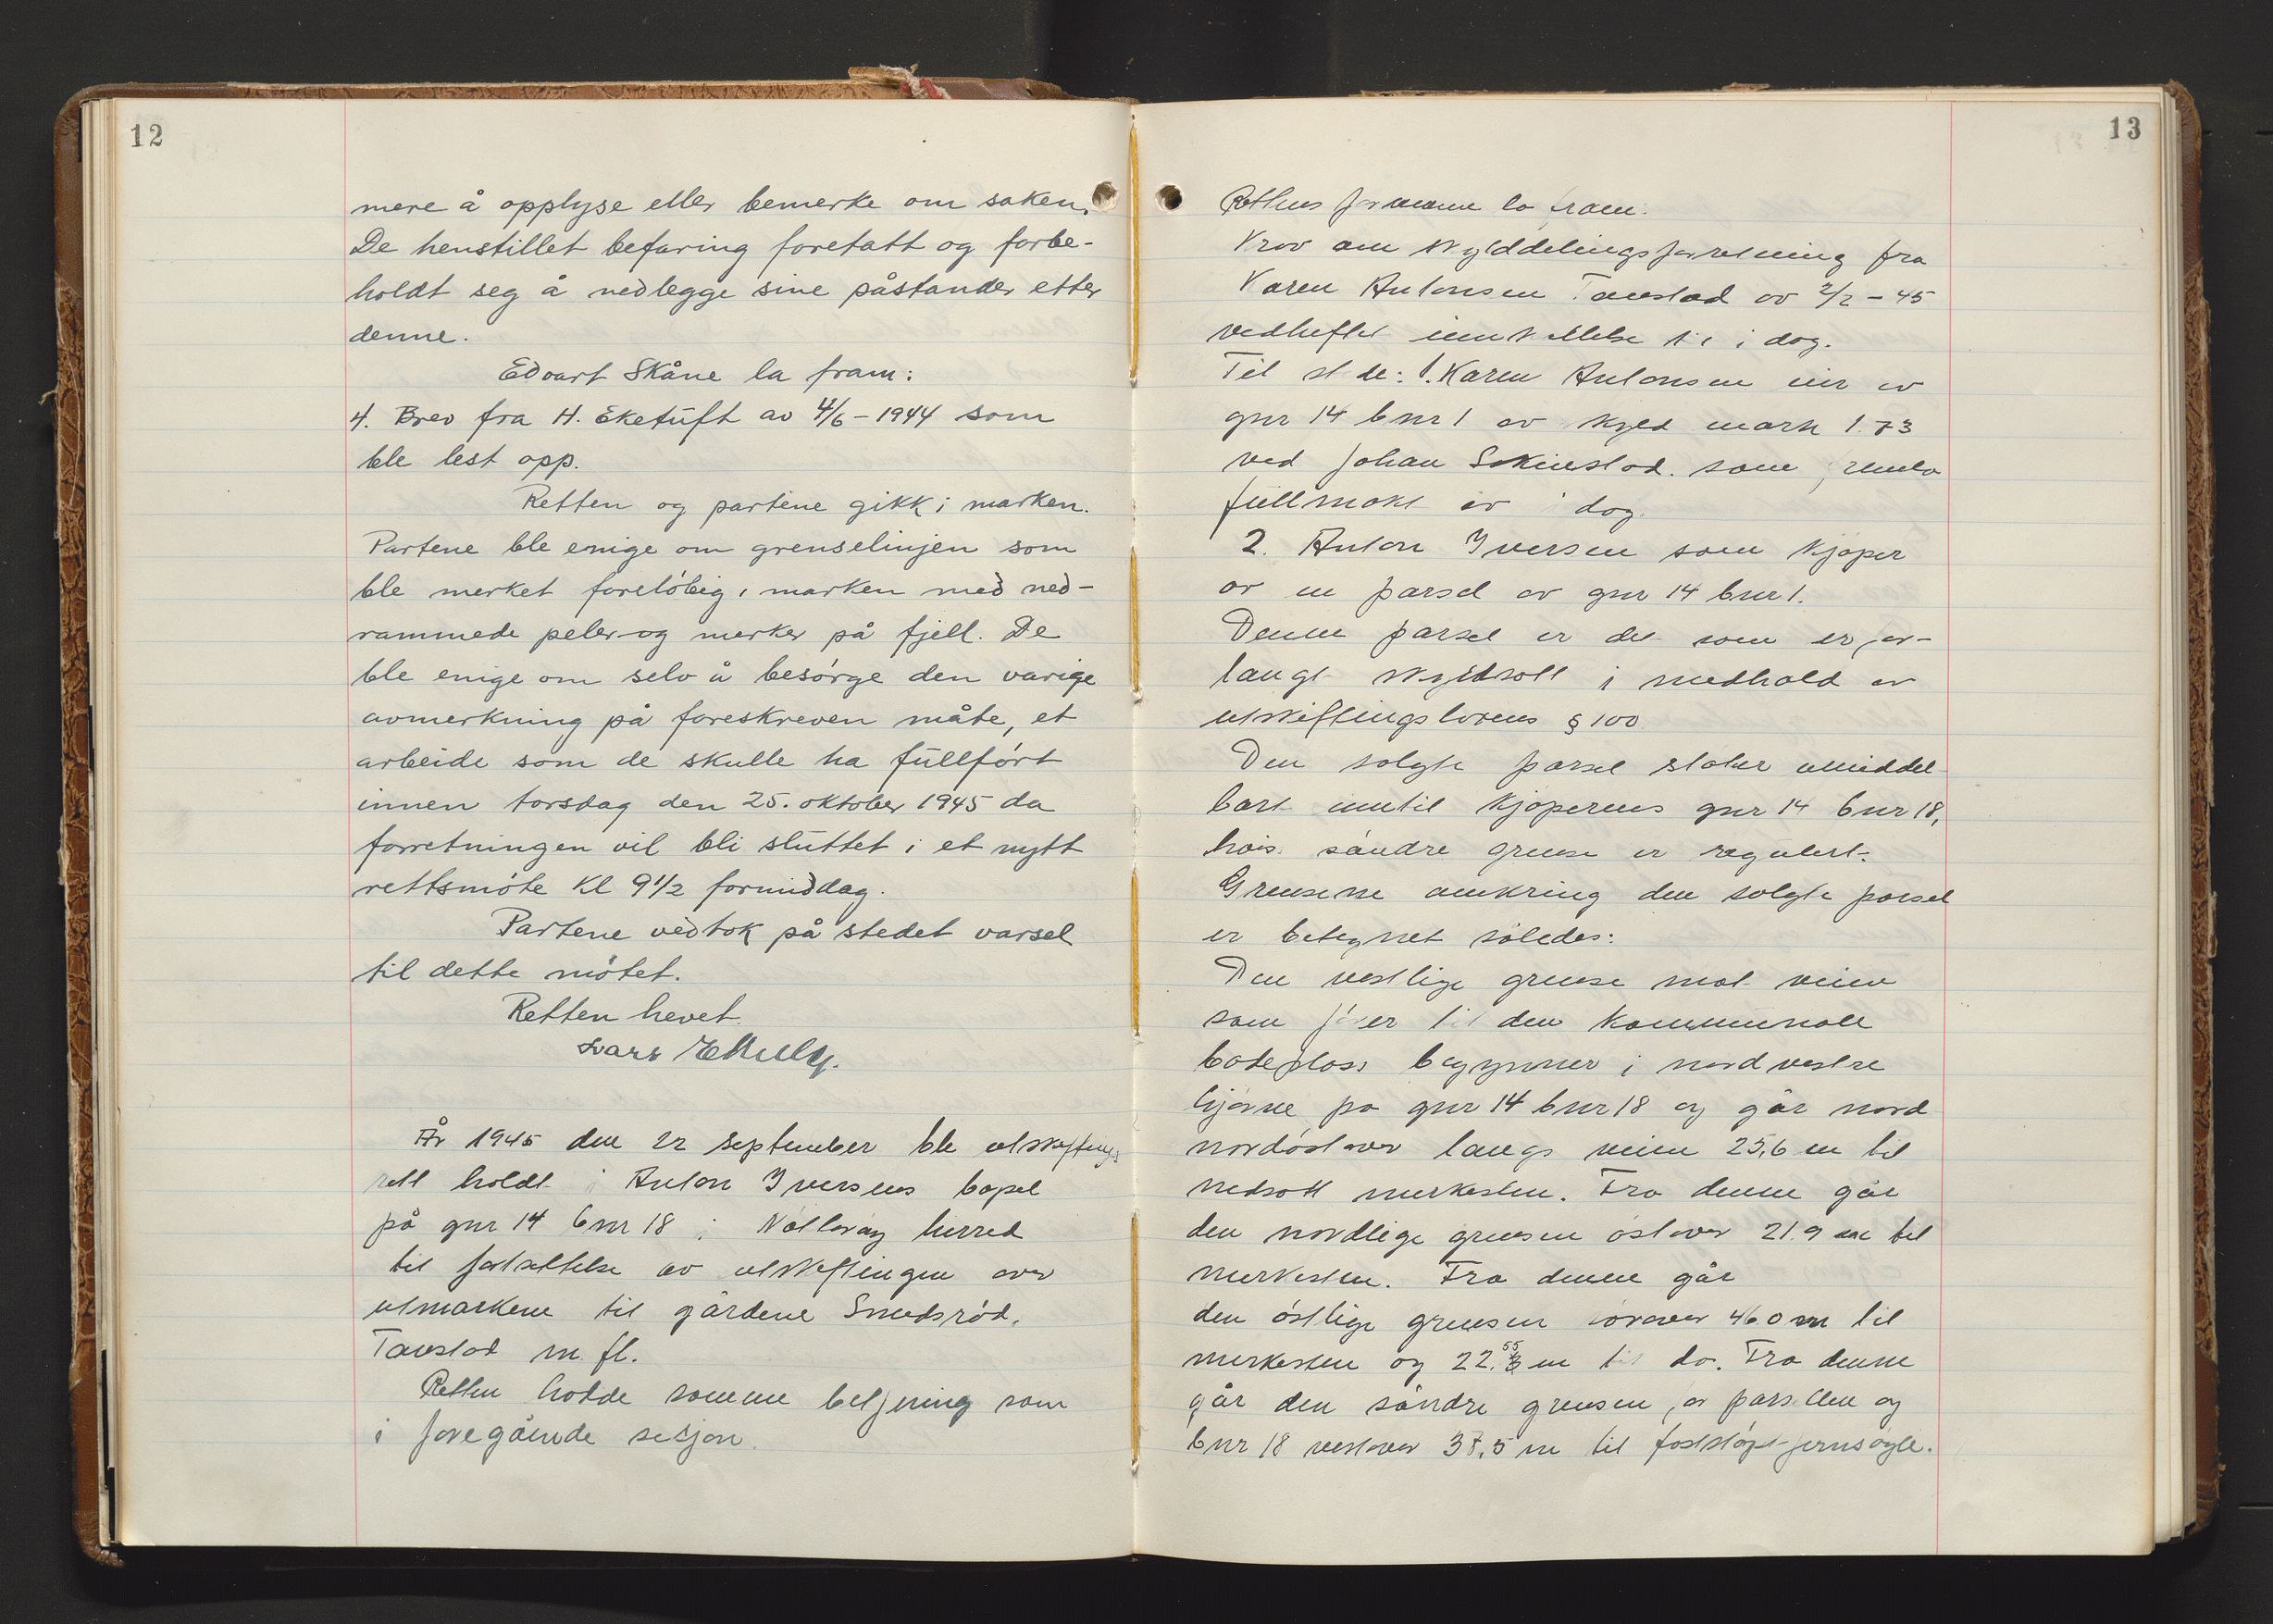 12
mere å opplyse eller bemerke om saken.
De henstillet befaring foretatt og forbe-
holdt seg å nedlegge sine påstander etter
denne.
Edvart Skåne la fram:
4. Brev fra H. Eketuft av 4/6 - 1944 som
ble lest opp.
Retten og partene gikk i marken.
Partene ble enige om grenselinjen som
ble merket foreløbig i marken med ned-
rammede peler og merker på fjell. De
ble enige om selv å besørge den varige
avmerkning på foreskreven måte, et
arbeide som de skulle ha fullført
innen torsdag den 25. oktober 1945 da
forretningen vil bli sluttet i et nytt
rettsmøte kl 9 1/2 formiddag.
Partene vedtok på stedet varsel
til dette møtet.
Retten hevet.
Lars
År 1945 den 22 september ble utskiftings
rett holdt i Anton Iversens bopel
på gnr 14 bnr 18 i Nøtterøy herred
til fortsettelse av utskiftingen over
utmarkene til gårdene Smedsrød,
Tanstad m. fl.
Retten hadde samme betjening som
i foregående sesjon.
13
Rettens formann la fram:
Krav om skylddelingsforretning fra
Karen Antonsen Tanstad av 2/2 - 45
vedheftet innkallelse til i dag.
Til stede: 1. Karen Antonsen eier av
gnr 14 bnr 1 av skyld mark 1.73
ved Johan som fremla
fullmakt av i dag.
2. Anton Iversen som kjøper
av en parsel av gnr 14 bnr 1.
Denne parsel er det som er for-
langt skyldsatt i medhold av
utskiftingslovens § 100.
Den solgte parsel støter umiddel-
bart inntil kjøperens gnr 14 bnr 18,
hvis søndre grense er regulert.
Grensene omkring den solgte parsel
er betegnet således:
Den vestlige grense mot veien
som fører til den kommunale
badeplass begynner i nordvestre
hjørne på gnr 14 bnr 18 og går nord
nordøstover langs veien 25,6 m til
nedsatt merkesten. Fra denne går
den nordlige grensen østover 21.9 m til
merkesten. Fra denne går
den østlige grensen sørover 46.0 m til
merkesten og 22.55 m til do. Fra denne
går den søndre grensen for parsellen og
bnr 18 vestover 38,5 m til faststøpt jernsøyle.